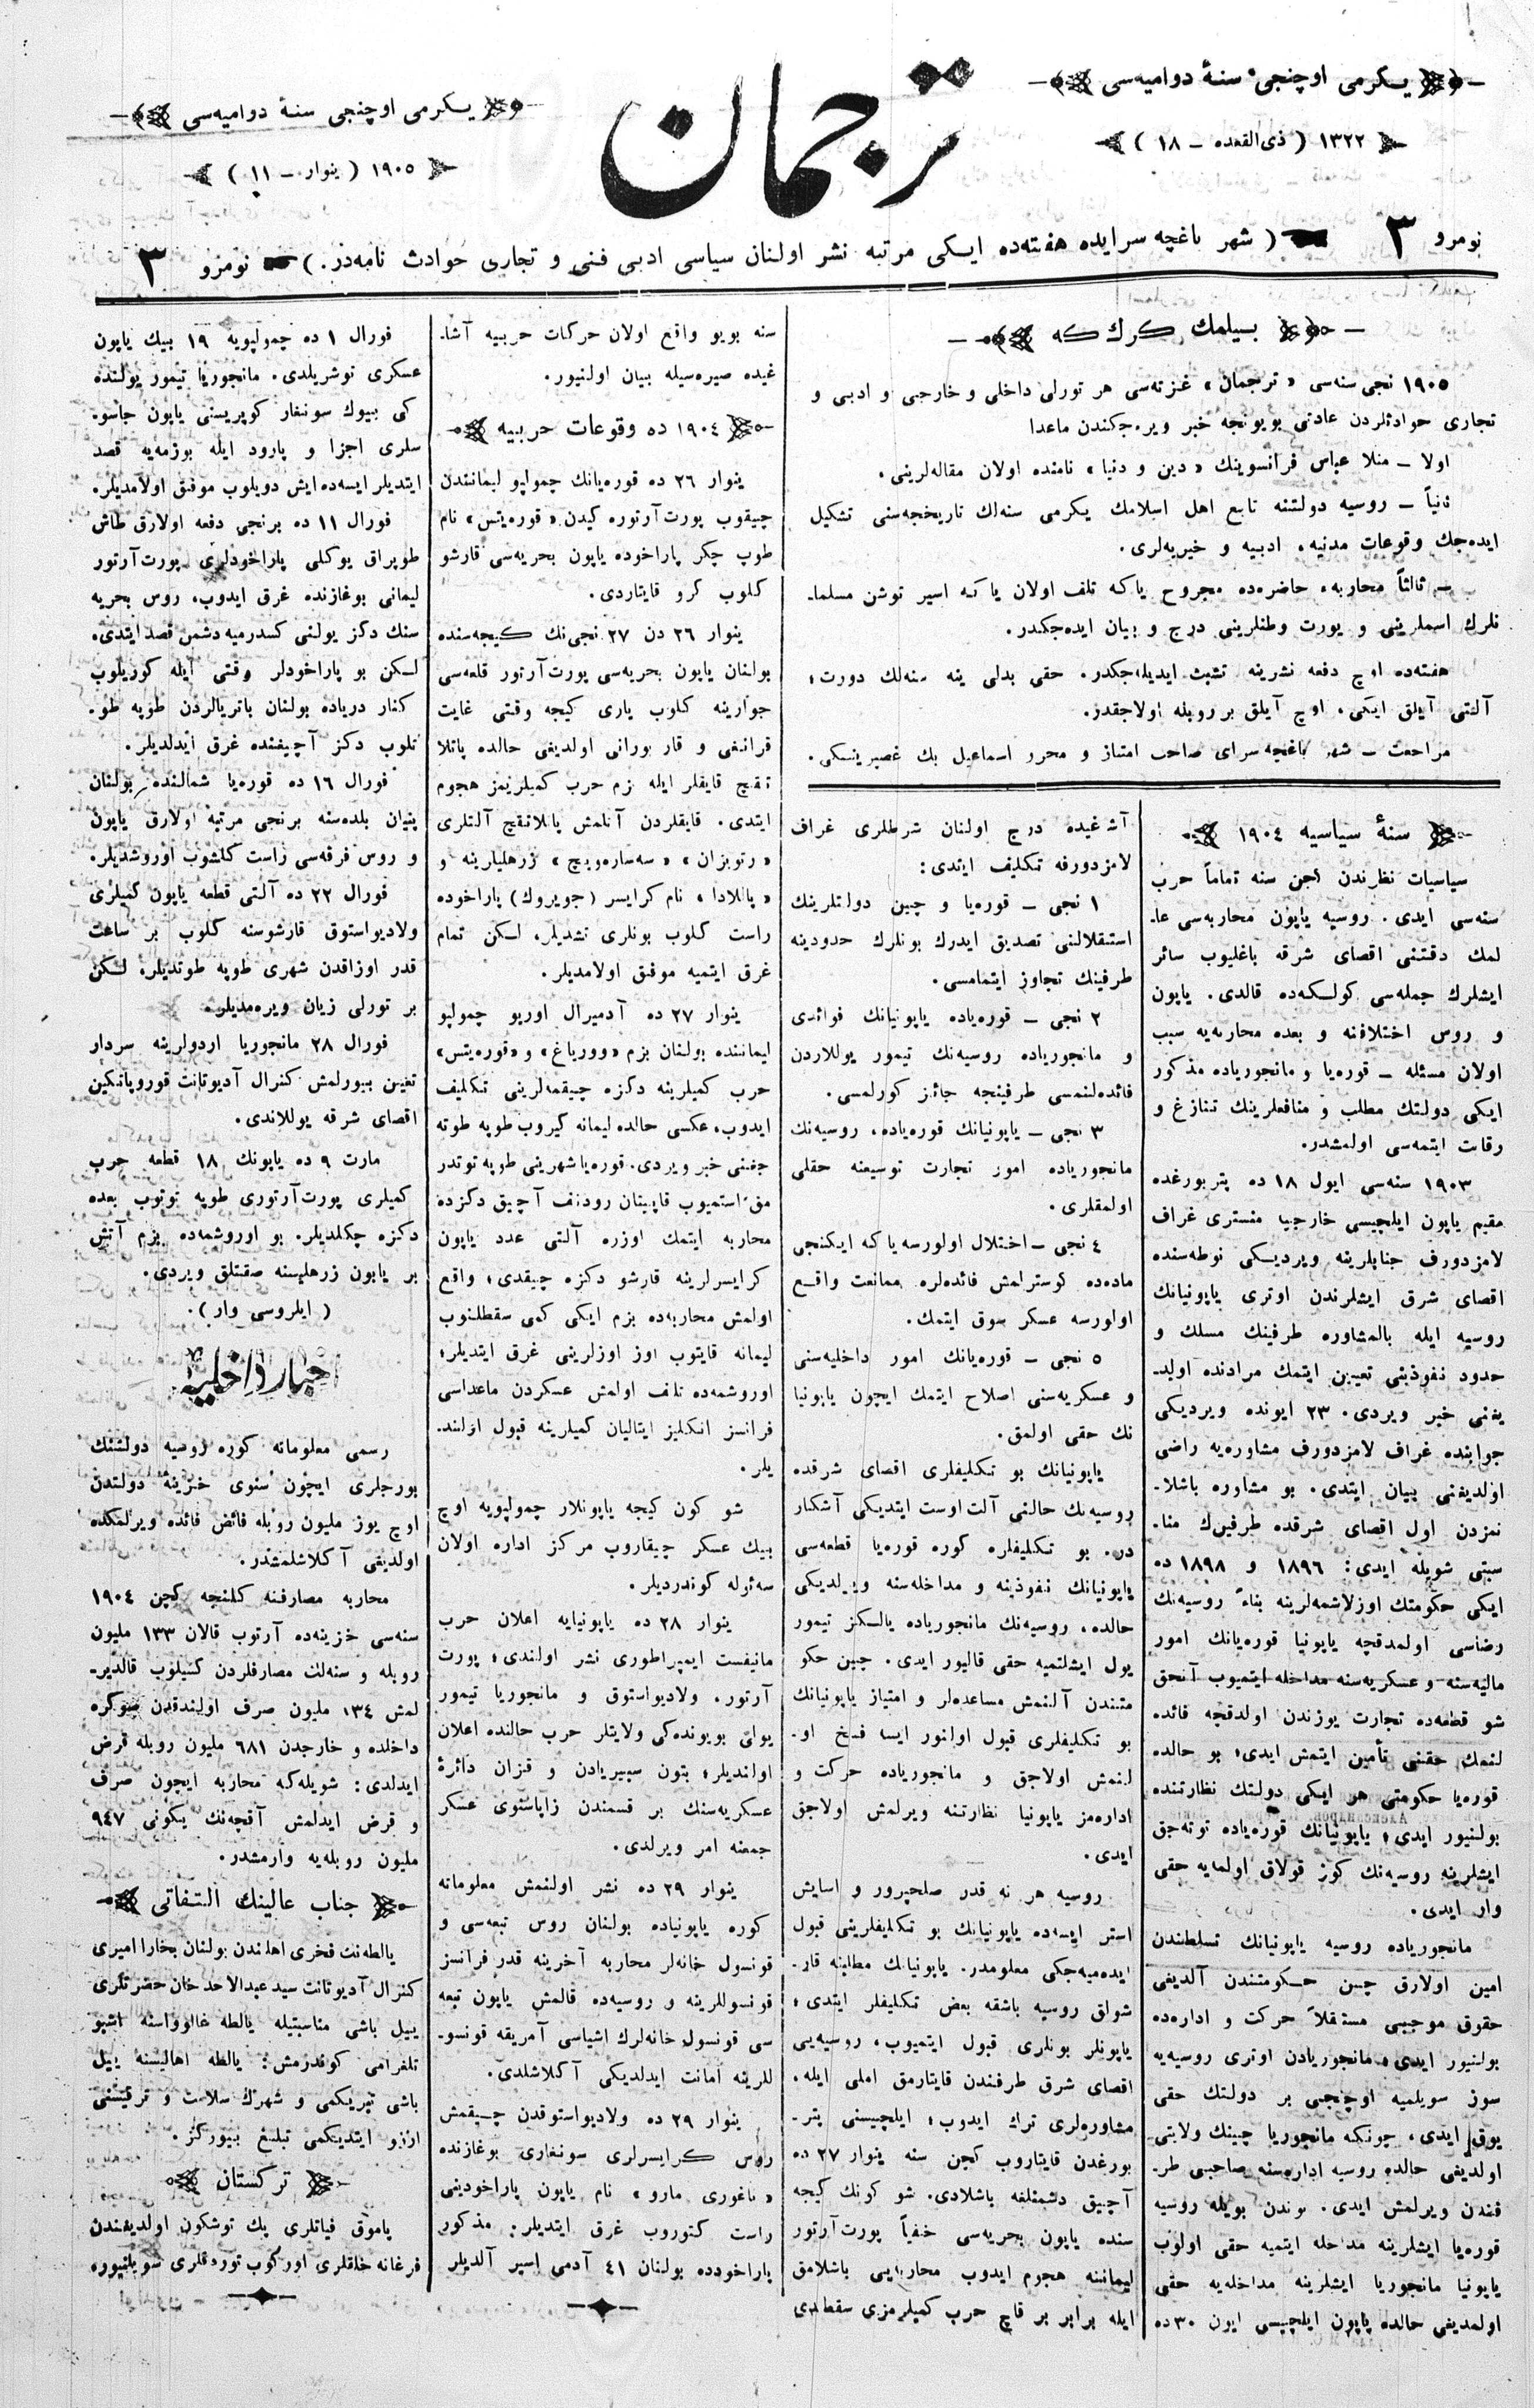 یكرمی اوچنجی سنهٔ دوامیه‌سی
۱۳۲۲ ( ذی‌القعده – ۱۸ )
ترجمان
یكرمی اوچنجی سنهٔ دوامیه‌سی
۱۹۰۵ ( ینوار – ۱۱ )
نومرو ۳ ( شهر باغچه سرایده هفته‌ده ایكی مرتبه نشر اولنان سیاسی ادبی فنی و تجاری حوادث نامه‌در. ) نومرو ۳
بیلمك كرك كه
۱۹۰۵ نجی سنه‌سی « ترجمان » غزته‌سی هر تورلی داخلی و خارجی و ادبی و
تجاری حوادثلردن عادتی بویونجه خبر ویره‌جكندن ماعدا
اولا – منلا عباس فرانسوینك « دین و دنیا » نامنده اولان مقاله‌لرینی.
ثانیاً – روسیه دولتنه تابع اهل اسلامك یكرمی سنه‌لك تاریخچه‌سنی تشكیل
ایده‌جك وقوعات مدنیه، ادبیه و خیریه‌لری.
– ثالثاً محاربهء حاضره‌ده مجروح یاكه تلف اولان یاكه اسیر توشن مسلما-
نلرك اسملرینی و یورت وطنلرینی درج و بیان ایده‌جكدر.
هفته‌ده اوچ دفعه نشرینه تشبث ایدیله‌جكدر. حقی بدلی ینه سنه‌لك دورت؛
آلتی آیلق ایكی، اوچ آیلق بر روبله اولاجقدر.
مراجعت – شهر باغچه سرای صاحب امتیاز و محرر اسماعیل بك غصپرینسكی.
سنهٔ سیاسیه ۱۹۰٤
سیاسیات نظرندن كچن سنه تماماً حرب
سنه‌سی ایدی. روسیه یاپون محاربه‌سی عا-
لمك دقتنی اقصای شرقه باغلیوب سائر
ایشلرك جمله‌سی كولكه‌ده قالدی. یاپون
و روس اختلافنه و بعده محاربه‌یه سبب
اولان مسئله – قوره‌یا و مانجوریاده مذكور
ایكی دولتك مطلب و منافعلرینك تنازغ و
رقابت ایتمه‌سی اولمشدر.
۱۹۰۳ سنه‌سی ایول ۱۸ ده پتربورغده
مقیم یاپون ایلچیسی خارجیا منستری غراف
لامزدورف جنابلرینه ویردیكی نوطه‌سنده
اقصای شرق ایشلرندن اوتری یاپونیانك
روسیه ایله بالمشاوره طرفینك مسلك و
حدود نفوذینی تعیین ایتمك مرادنده اولد-
یغنی خبر ویردی. ۲۳ ایونده ویردیكی
جوابنده غراف لامزدورف مشاوره‌یه راضی
اولدیغنی بیان ایتدی. بو مشاوره باشلا-
نمزدن اول اقصای شرقده طرفینك منا-
سبتی شویله ایدی: ۱۸۹٦ و ۱۸۹۸ ده
ایكی حكومتك اوزلاشمه‌لرینه بناءً روسیه‌نك
رضاسی اولمدقچه یاپونیا قوره‌یانك امور
مالیه‌سنه و عسكریه‌سنه مداخله ایتمیوب آنجق
شو قطعه‌ده تجارت یوزندن اولدقچه فائده
لنمك حقنی تأمین ایتمش ایدی؛ بو حالده
قوره‌یا حكومتی هر ایكی دولتك نظارتنده
بولنیور ایدی؛ یاپونیانك قوره‌یاده توته‌جق
ایشلرینه روسیه‌نك كوز قولاق اولمایه حقی
وار ایدی.
مانجوریاده روسیه یاپونیانك تسلطندن
امین اولارق چین حكومتندن آلدیغی
حقوق موجبی مستقلاً حركت و اداره‌ده
بولنیور ایدی، مانجوریادن اوتری روسیه‌یه
سوز سویلمیه اوچنجی بر دولتك حقی
یوق ایدی، چونكه مانجوریا چینك ولایتی
اولدیغی حالده روسیه اداره‌سنه صاحبی طر-
فندن ویرلمش ایدی. بوندن بویله روسیه
قوره‌یا ایشلرینه مداخله ایتمیه حقی اولوب
یاپونیا مانجوریا ایشلرینه مداخله‌یه حقی
اولمدیغی حالده یاپون ایلچیسی ایون ۳۰ ده
آشاغیده درج اولنان شرطلری غراف
لامزدورفه تكلیف ایتدی:
۱ نجی – قوره‌یا و چین دولتلرینك
استقلالنی تصدیق ایدرك بونلرك حدودینه
طرفینك تجاوز ایتمامسی.
۲ نجی – قوره‌یاده یاپونیانك فوائدی
و مانجوریاده روسیه‌نك تیمور یوللاردن
فائده‌لنمسی طرفینجه جائز كورلمسی.
۳ نجی – یاپونیانك قوره‌یاده، روسیه‌نك
مانجوریاده امور تجارت توسیعنه حقلی
اولمقلری.
٤ نجی – اختلال اولورسه یاكه ایكنجی
ماده‌ده كوسترلمش فائده‌لره ممانعت واقع
اولورسه عسكر سوق ایتمك.
۵ نجی – قوره‌یانك امور داخلیه‌سنی
و عسكریه‌سنی اصلاح ایتمك ایچون یاپونیا
نك حقی اولمق.
یاپونیانك بو تكلیفلری اقصای شرقده
روسیه‌نك حالنی آلت اوست ایتدیكی آشكار
در. بو تكلیفلره كوره قوره‌یا قطعه‌سی
یاپونیانك نفوذینه و مداخله‌سنه ویرلدیكی
حالده، روسیه‌نك مانجوریاده یالكز تیمور
یول ایشلتمیه حقی قالیور ایدی. چین حكو
متندن آلنمش مساعده‌لر و امتیاز یاپونیانك
بو تكلیفلری قبول اولنور ایسه فسخ او-
لنمش اولاجق و مانجوریاده حركت و
اداره‌مز یاپونیا نظارتنه ویرلمش اولاجق
ایدی.
روسیه هر نه قدر صلحپرور و اسایش
استر ایسه‌ده یاپونیانك بو تكلیفلرینی قبول
ایده‌میه‌جكی معلومدر. یاپونیانك مطلبنه قار-
شولق روسیه باشقه بعض تكلیفلر ایتدی؛
یاپونلر بونلری قبول ایتمیوب، روسیه‌یی
اقصای شرق طرفندن قایتارمق املی ایله،
مشاوره‌لری ترك ایدوب؛ ایلچیسنی پتر-
بورغدن قایتاروب كچن سنه ینوار ۲۷ ده
آچیق دشمنلغه باشلادی. شو كونك كیجه
سنده یاپون بحریه‌سی خفیاً پورت آرتور
لیماننه هجوم ایدوب محاربه‌یی باشلامق
ایله برابر بر قاچ حرب كمیلرمزی سقطلدی
سنه بویو واقع اولان حركات حربیه آشا-
غیده صیره‌سیله بیان اولنیور.
۱۹۰٤ ده وقوعات حربیه
ینوار ۲٦ ده قوره‌یانك چمولپو لیمانندن
چیقوب پورت آرتوره كیدن « قوره‌یتس » نام
طوپ چكر پاراخوده یاپون بحریه‌سی قارشو
كلوب كرو قایتاردی.
ینوار ۲٦ دن ۲۷ نجی‌نك كیجه‌سنده
بولنان یاپون بحریه‌سی پورت آرتور قلعه‌سی
جوارینه كلوب یاری كیجه وقتی غایت
قرانغی و قار بورانی اولدیغی حالده پاتلا
نقیچ قایقلر ایله بزم حرب كمیلریمز هجوم
ایتدی. قایقلردن آتلمش پاتلانقیچ آلتلری
« رتویزان » « سه‌ساره‌ویچ » زرهلیلرینه و
« پاللادا » نام كرایسر ( جویروك ) پاراخوده
راست كلوب بونلری تشدیلر، لكن تمام
غرق ایتمیه موفق اولامدیلر.
ینوار ۲۷ ده آدمیرال اوریو چمولپو
لیماننده بولنان بزم « ووریاغ » و « قوره‌یتس »
حرب كمیلرینه دكزه چیقمه‌لرینی تكلیف
ایدوب، عكسی حالده لیمانه كیروب طوپه طوته
جغنی خبر ویردی. قوره‌یا شهرینی طوپه توتدر
مق استمیوب قاپیتان رودنف آچیق دكزده
محاربه ایتمك اوزره آلتی عدد یاپون
كرایسرلرینه قارشو دكزه چیقدی؛ واقع
اولمش محاربه‌ده بزم ایكی كمی سقطلنوب
لیمانه قایتوب اوز اوزلرینی غرق ایتدیلر؛
اوروشمه‌ده تلف اولمش عسكردن ماعداسی
فرانسز انكلیز ایتالیان كمیلرینه قبول اولند-
یلر.
شو كون كیجه یاپونلار چمولپویه اوچ
بیك عسكر چیقاروب مركز اداره اولان
سه‌ئوله كوندردیلر.
ینوار ۲۸ ده یاپونیایه اعلان حرب
مانیفست ایمپراطوری نشر اولندی؛ پورت
آرتور، ولادیواستوق و مانجوریا تیمور
یولی بویونده‌كی ولایتلر حرب حالنده اعلان
اولندیلر؛ بتون سیبیریادن و قزان دائرهٔ
عسكریه‌سنك بر قسمندن زاپاسنوی عسكر
جمعنه امر ویرلدی.
ینوار ۲۹ ده نشر اولنمش معلوماته
كوره یاپونیاده بولنان روس تبعه‌سی و
قونسول خانه‌لر محاربه آخرینه قدر فرانسز
قونسوللرینه و روسیه‌ده قالمش یاپون تبعه
سی قونسول خانه‌لرك اشیاسی آمریقه قونسو-
للرینه امانت ایدلدیكی آكلاشلدی.
ینوار ۲۹ ده ولادیواستوقدن چیقمش
روس كرایسرلری سونغاری بوغازنده
« ناغوری مارو » نام یاپون پاراخودینی
راست كتوروب غرق ایتدیلر؛ مذكور
پاراخودده بولنان ٤۱ آدمی اسیر آلدیلر
فورال ۱ ده چمولپویه ۱۹ بیك یاپون
عسكری توشریلدی. مانجوریا تیمور یولنده
كی بیوك سونغار كوپریسنی یاپون جاسو-
سلری اجزا و پارود ایله بوزمه‌یه قصد
ایتدیلر ایسه‌ده ایش دویلوب موفق اولامدیلر.
فورال ۱۱ ده برنجی دفعه اولارق طاش
طوپراق یوكلی پاراخودلری پورت آرتور
لیمانی بوغازنده غرق ایدوب، روس بحریه
سنك دكز یولنی كسدرمیه دشمن قصد ایتدی،
لكن بو پاراخودلر وقتی ایله كوریلوب
كنار دریاده بولنان باتریالردن طوپه طو-
تلوب دكز آچیغنده غرق ایدلدیلر.
فورال ۱٦ ده قوره‌یا شمالنده بولنان
پنیان بلده‌سنه برنجی مرتبه اولارق یاپون
و روس فرقه‌سی راست كلشوب اوروشدیلر.
فورال ۲۲ ده آلتی قطعه یاپون كمیلری
ولادیواستوق قارشوسنه كلوب بر ساعت
قدر اوزاقدن شهری طوپه طوتدیلر، لكن
بر تورلی زیان ویره‌مدیلر.
فورال ۲۸ مانجوریا اردولرینه سردار
تعیین بیورلمش كنرال آدیوتانت قوروپاتكین
اقصای شرقه یوللاندی.
مارت ۹ ده یاپونك ۱۸ قطعه حرب
كمیلری پورت آرتوری طوپه توتوب بعده
دكزه چكلدیلر. بو اوروشمه‌ده بزم آتش
بر یاپون زرهلیسنه صقتلق ویردی.
( ایلروسی وار ).
اخبار داخلیه
رسمی معلوماته كوره روسیه دولتنك
بورجلری ایچون سنوی خزینهٔ دولتدن
اوچ یوز ملیون روبله فائض فائده ویرلمكده
اولدیغی آكلاشلمشدر.
محاربه مصارفنه كلنجه كچن ۱۹۰٤
سنه‌سی خزینه‌ده آرتوب قالان ۱۳۳ ملیون
روبله و سنه‌لك مصارفلردن كسیلوب قالدیر-
لمش ۱۳٤ ملیون صرف اولندقدن صوكره
داخلده و خارجدن ٦۸۱ ملیون روبله قرض
ایدلدی: شویله‌كه محاربه ایچون صرف
و قرض ایدلمش آقچه‌نك یكونی ۹٤۷
ملیون روبله‌یه وارمشدر.
جناب عالینك التفاتی
یالطه‌نك فخری اهلندن بولنان بخارا امیری
كنرال آدیوتانت سید عبدالاحد خان حضرتلری
ییل باشی مناسبتیله یالطه غالاواسنه اشبو
تلغرامی كوندرمش: یالطه اهالیسنه ییل
باشی تبریكمی و شهرك سلامت و ترقیسنی
ارزو ایتدیكمی تبلیغ بیورگز.
تركستان
پاموق فیاتلری پك توشكون اولدیغندن
فرغانه خلقلری اوركوب توردقلری سویلنیور،